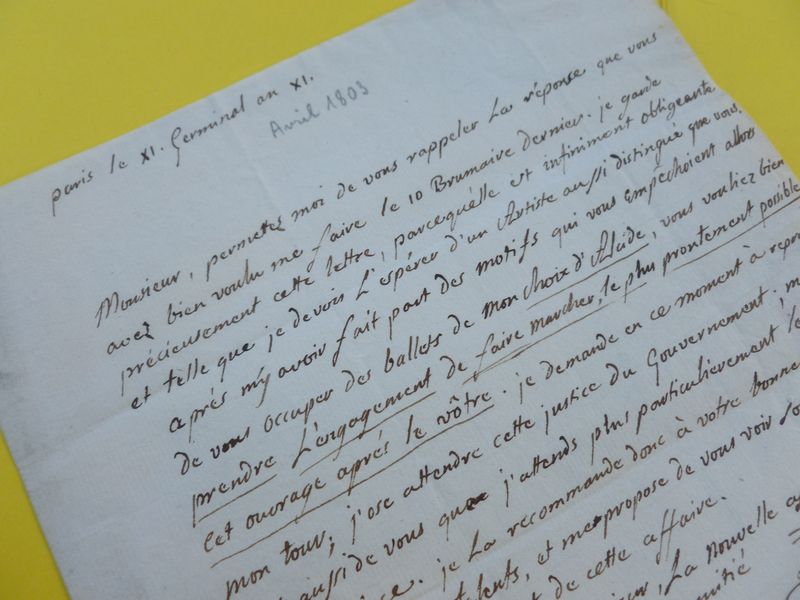 paris le XI. Germinal an XI.
Avril 1803
Monsieur, permettés moi de vous rappeler La réponse que vous
avez bien voulu me faire le 10 Brumaire dernier. je garde
précieusement cette lettre, parcequ'elle est infiniment obligeante
et telle que je devois L'espérer d'un Artiste aussi distingué que vous.
après m'y avoir fait part des motifs qui vous empêchoient allors
de vous occuper des ballets de mon choix d'Alcide, vous vouliez bien
prendre L'engagement de faire marcher, le plus prontement possible
cet ouvrage après le vôtre. je demande en ce moment à repr
mon tour; j'ose attendre cette justice du Gouvernement; m
aussi de vous que j'attends plus particulièrement le
ice. je La recommande donc à votre bonne
lents, et me propose de vous voir so
t de cette affaire.
ieur, La nouvelle a
mitié